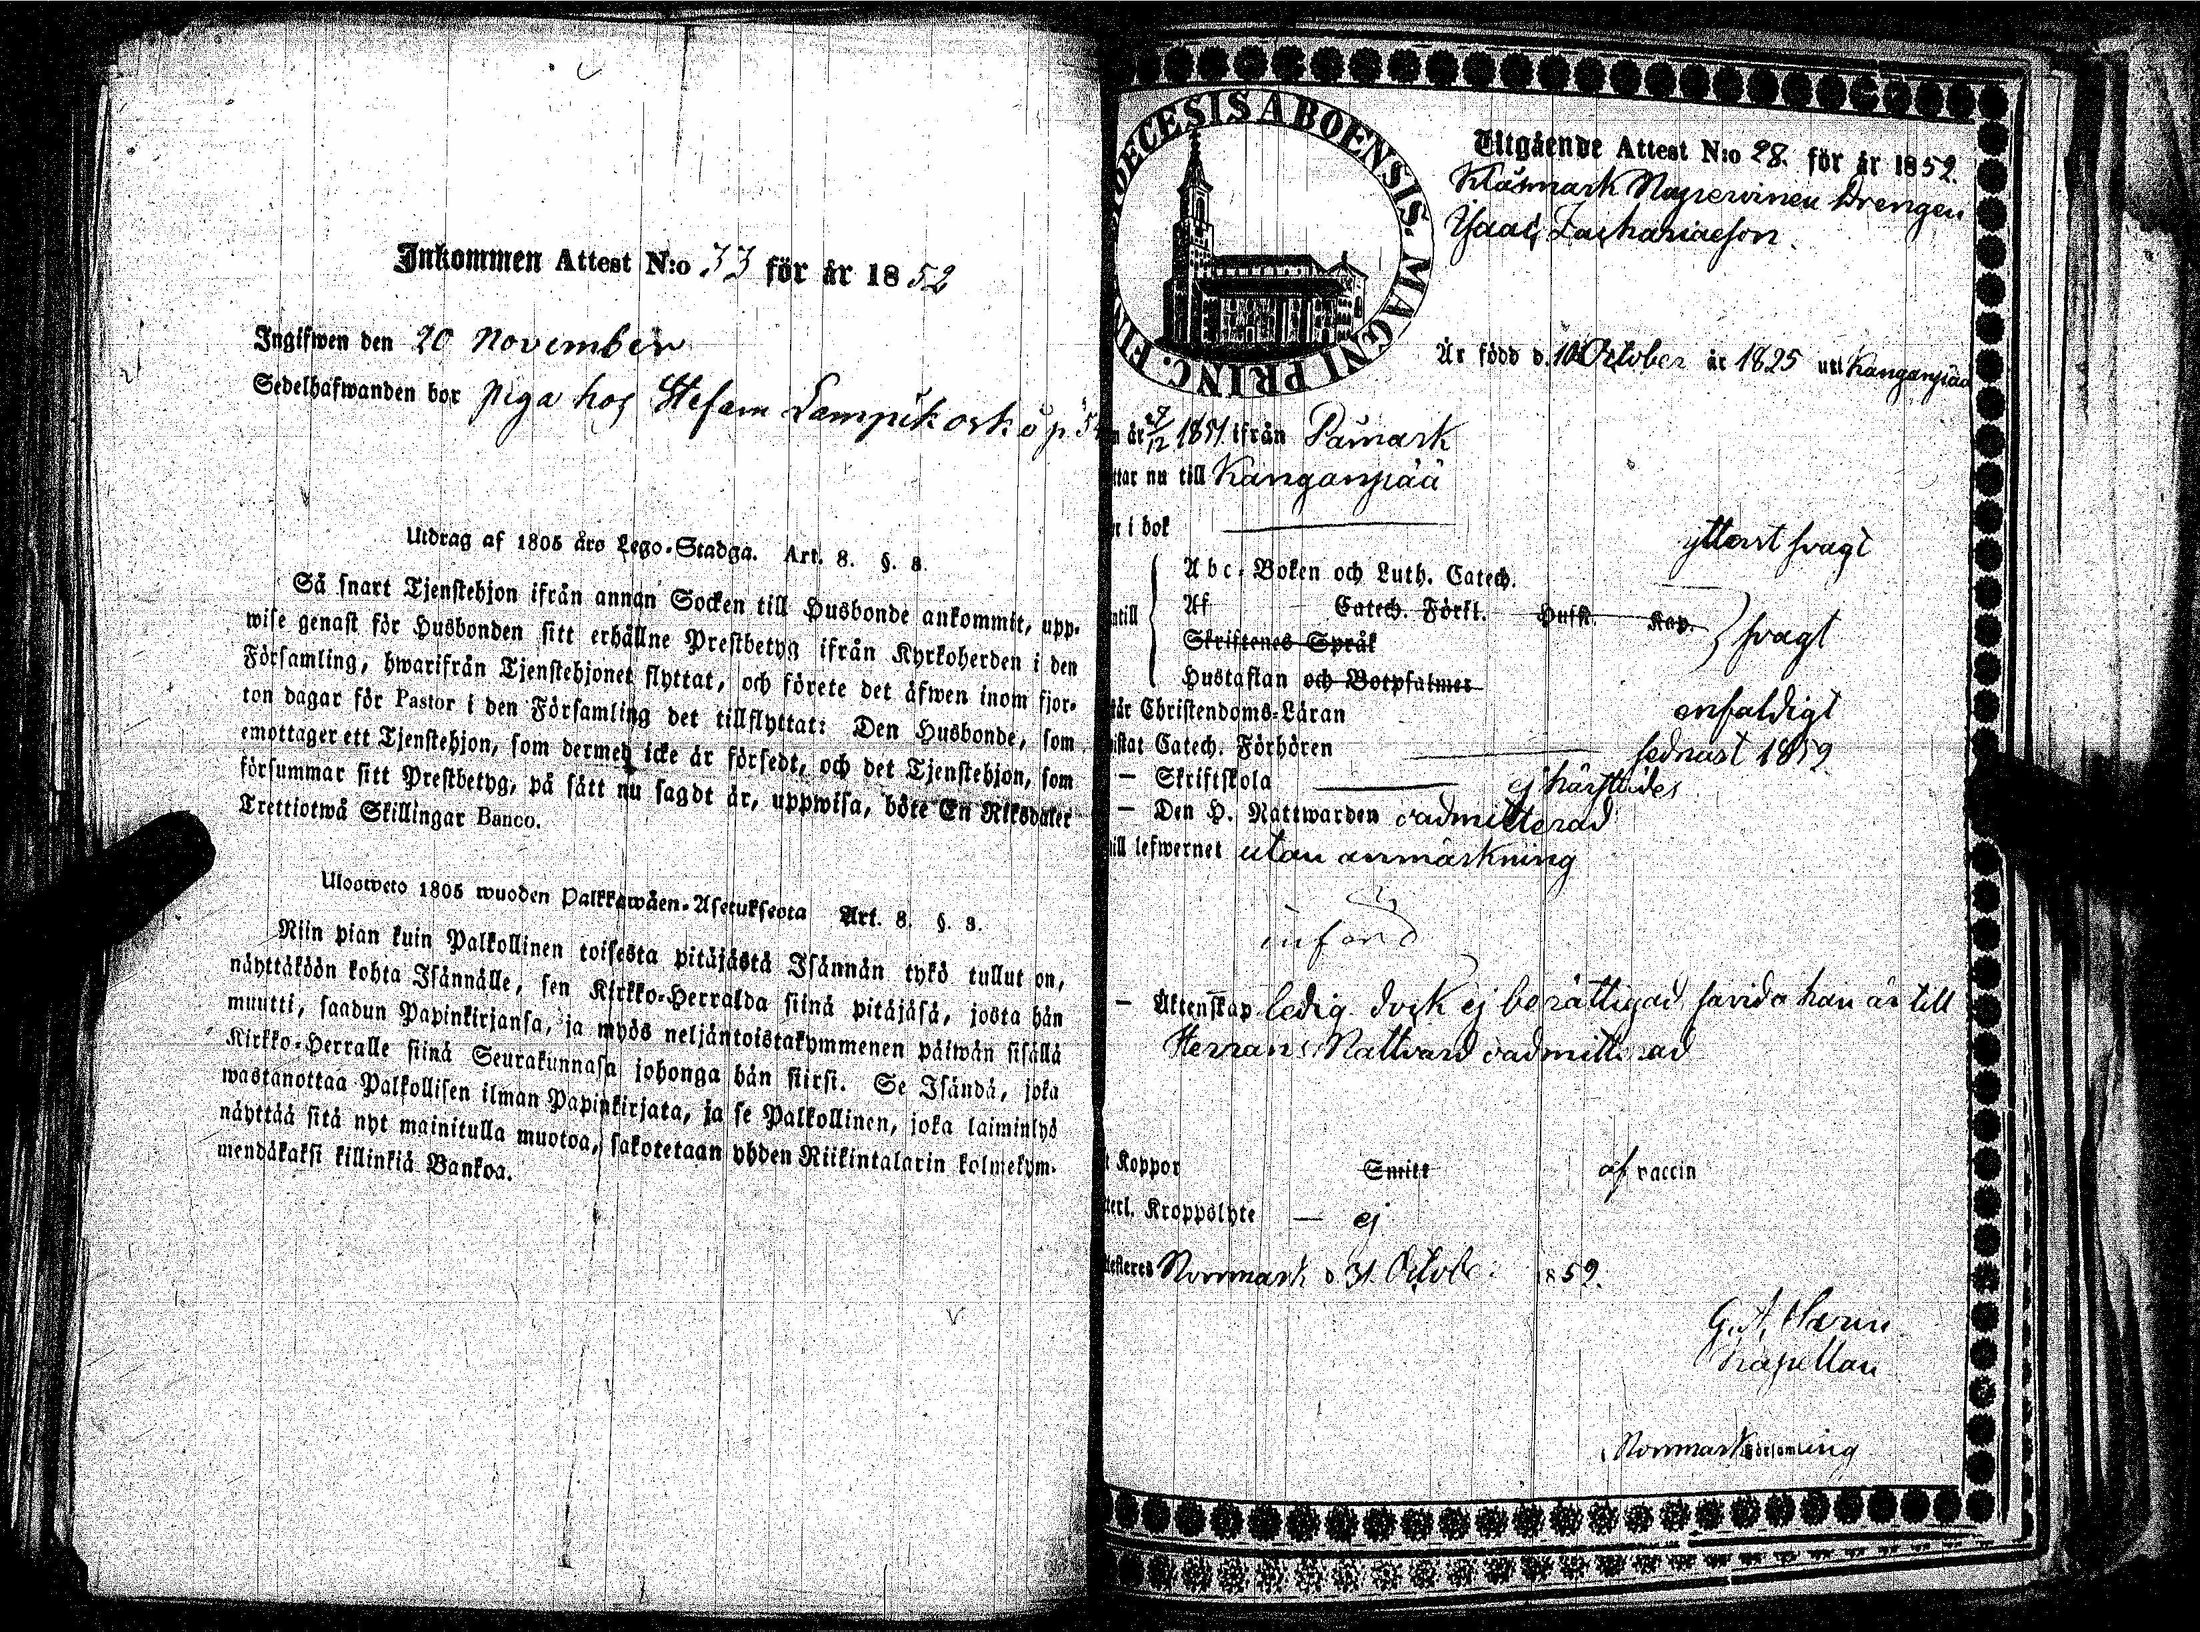 Inkommen Attest N:o 33 för år 1852
Ingifwen den 20 November
Sedelhafwanden bor piga hos Stefam Lampikoski
Utdrag af 1805 års Lego-Stadga. Art. 8. §. 3.
Så snart Tjenstehjon ifrån annan Socken till Husbonde ankommit, upp-
wise genast för Husbonden sitt erhållne Prestbetyg ifrån Kyrkoherden i den
Församling, hwarifrån Tjenstehjonet flyttat, och förete det äfwen inom fjor-
ton dagar för Pastor i den Församling det tillflyttat: Den Husbonde, som
emottager ett Tjenstehjon, som dermed icke är försedt, och det Tjenstehjon, som
försummar sitt Prestbetyg, på sätt nu sagdt är, uppwisa, böte En Riksdaler
Trettiotwå Skillingar Banco.
Ulosweto 1805 wuoden Palkkawäen-Asetuksesta Art. 8. §. 3.
Niin pian kuin Palkollinen toisesta pitäjästä Isännän tykö tullut on,
näyttäköön kohta Isännälle, sen Kirkko-Herralda siinä pitäjäsä, josta hän
muutti, saadun Papinkirjansa, ja myös neljäntoistakymmenen päiwän sisällä
Kirkko-Herralle siinä Seurakunnasa johonga hän siirsi. Se Isändä, joka
wastanottaa Palkollisen ilman Papinkirjata, ja se Palkollinen, joka laiminlyö
näyttää sitä nyt mainitulla muotoa, sakotetaan yhden Riikintalarin kolmekym-
mendäkaksi killinkiä Bankoa.
DIOECESIS ABOENSIS. MAGNI PRINC. FIN
Utgående Attest N:o 28. för år 1852.
Drengen
Isaac Zachariaeson.
Är född d. 10 October år 1825 uti Kanganpää
år 27/12 1851 ifrån Påmark
tar nu till Kanganpää
r i bok ytterst svagt
Abc-Boken och Luth. Catech.
ntill Af Catech. Förkl. Husl. Kap. svagt
Skriftenes Språk
Hustaflan och Botpsalmer
tår Christendoms-Läran enfaldigt
istat Catech. Förhören sednast 1852
— Skriftskola ej härstädes
— Den H. Nattwarden oadmitterad
ill lefwernet utan anmärkning
— Äktenskap ledig dock ej berättigad, savida han är till
Herrans Nattvard oadmitterad
t Koppor Smitt af vaccin
terl. Kroppslyte — ej
testeres Norrmark d 31 Octob. 1852.
Kapellan
Norrmark församling